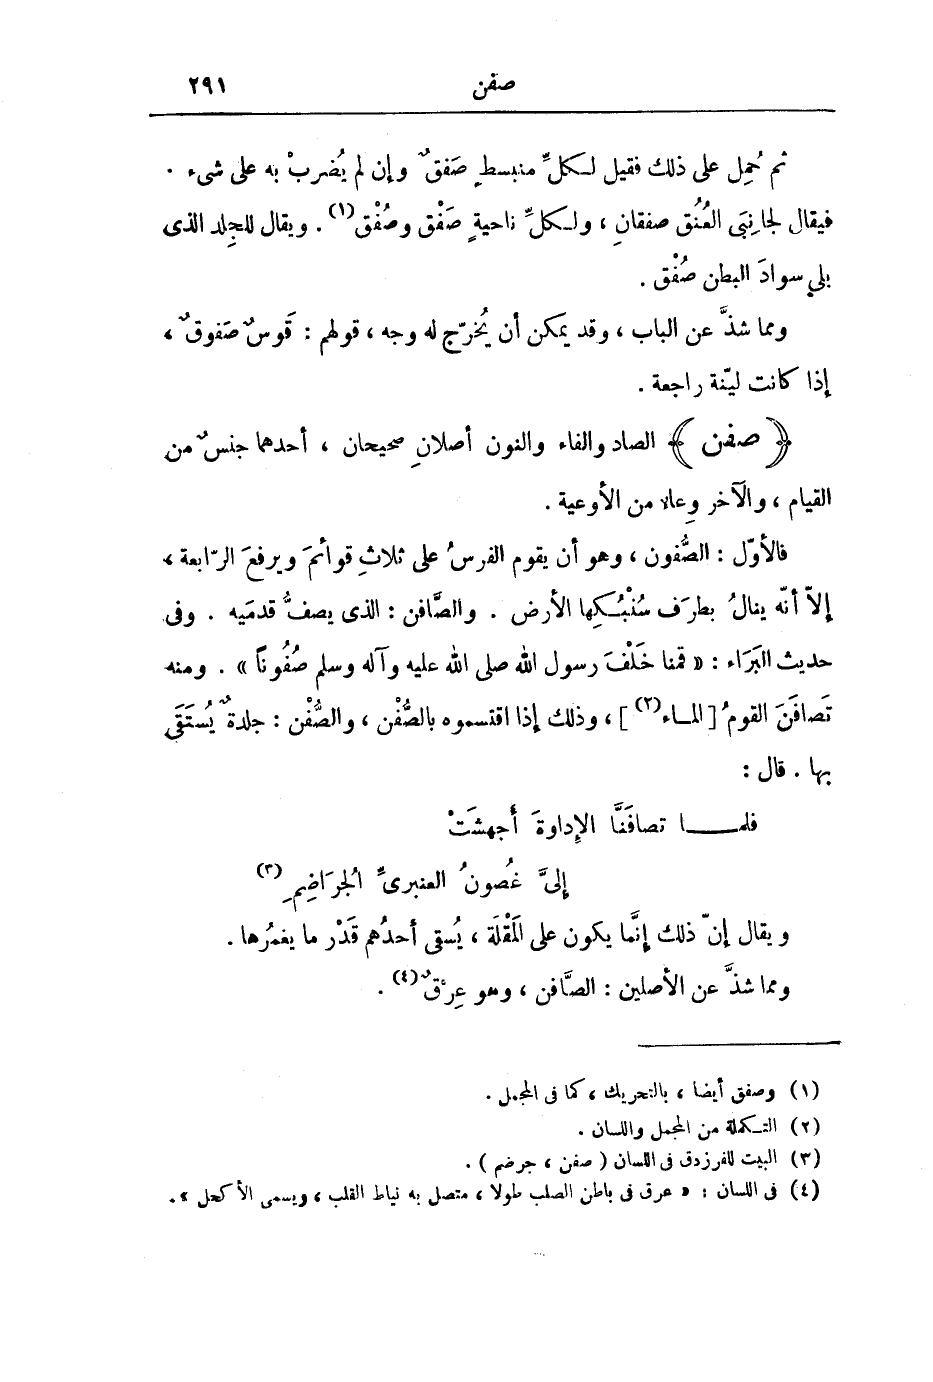 صفن ٢٩١
ثم حُمِل على ذلك فقيل لكلِّ منبسطٍ صَفقٌ وإن لم يُضربْ به على شىء .
فيقال لجانِبَىِ العُنُق صفقانِ ، ولكلِّ ناحيةٍ صَفْق وصُفْق(١) . ويقال للجِلد الذى
يلي سوادَ البطن صُفْق .
ومما شذَّ عن الباب ، وقد يمكن أن يُخرّج له وجه ، قولهم : قَوسٌ صَفوقٌ ،
إذا كانت ليّنة راجعة .
﴿ صفن ﴾ الصاد والفاء والنون أصلانِ صحيحان ، أحدهما جنسٌ من
القيام ، والآخر وِعاء من الأوعية .
فالأوّل : الصُّفون ، وهو أن يقوم الفرسُ على ثلاثِ قوائمَ ويرفعَ الرّابعة ،
إلاّ أنّه ينالُ بطرَف سُنْبُكِها الأرض . والصَّافن : الذى يصفُّ قدمَيه . وفى
حديث البَرَاء : « قمنا خَلْفَ رسول الله صلى الله عليه وآله وسلم صُفُوناً » . ومنه
تَصافَنَ القومُ [ الماء(٢) ] ، وذلك إذا اقتسموه بالصُّفْن ، والصُّفْن : جلدةٌ يُستَقَى
بها . قال :
فلمــا تصافَنَّا الإِداوةَ أَجهشَتْ
إلىَّ غُصونُ العنبرىِّ الجُرَاضِمِ(٣)
ويقال إنّ ذلك إنَّما يكون على المَقْلَة ، يُسقى أحدُهم قَدْر ما يغمُرها .
ومما شذَّ عن الأصلين : الصَّافن ، وهو عِرْقٌ(٤) .
(١) وصفق أيضا ، بالتحريك ، كما فى المجمل .
(٢) التكملة من المجمل واللسان .
(٣) البيت للفرزدق فى اللسان ( صفن ، جرضم ) .
(٤) فى اللسان : « عرق فى باطن الصلب طولا ، متصل به نياط القلب ، ويسمى الأكحل » .